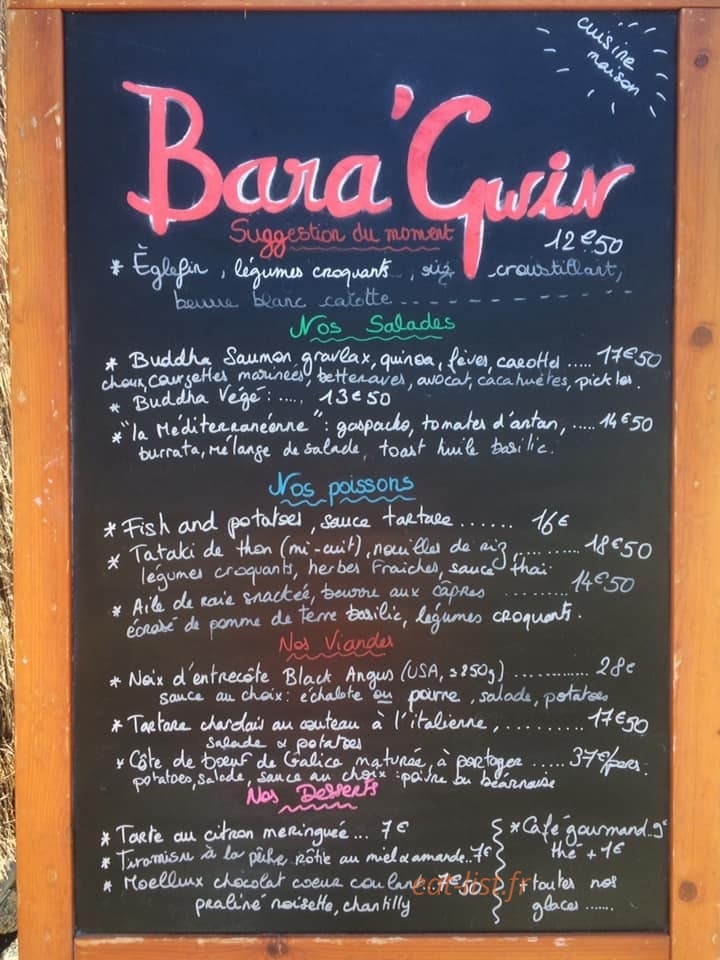 cuisine
maison
Bara'Gwin
Suggestion du moment
12€50
* Èglefin, légumes croquants, riz croustillant,
beurre blanc carotte
Nos Salades
* Buddha Saumon gravlax, quinoa, fèves, carottes ..... 17€50
choux, courgettes marinées, betteraves, avocat, cacahuètes, pickles.
* Buddha Végé : ..... 13€50
* "la Méditerranéenne" : gaspacho, tomates d'antan, ..... 14€50
burrata, mélange de salade, toast huile basilic.
Nos poissons
* Fish and potatoes, sauce tartare ...... 16€
* Tataki de thon (mi-cuit), nouilles de riz, .......... 18€50
légumes croquants, herbes fraiches, sauce thaï
* Aile de raie snackée, beurre aux câpres ......... 14€50
écrasé de pomme de terre basilic, légumes croquants.
Nos Viandes
* Noix d'entrecôte Black Angus (USA, ±250g) ............. 28€
sauce au choix : échalote ou poivre, salade, potatoes
* Tartare charolais au couteau à l'italienne, .......... 17€50
salade & potatoes
* Côte de boeuf de Galice maturée, à partager ..... 37€/pers.
potatoes, salade, sauce au choix : poivre ou béarnaise
Nos Desserts
* Tarte au citron meringuée ... 7€
* Tiramisu à la pêche rôtie au miel & amande.. 7€
* Moelleux chocolat coeur coulant 7€50
praliné noisette, chantilly
* Café gourmand.. 9€
thé + 1€
+ toutes nos
glaces ......
eat-list.fr